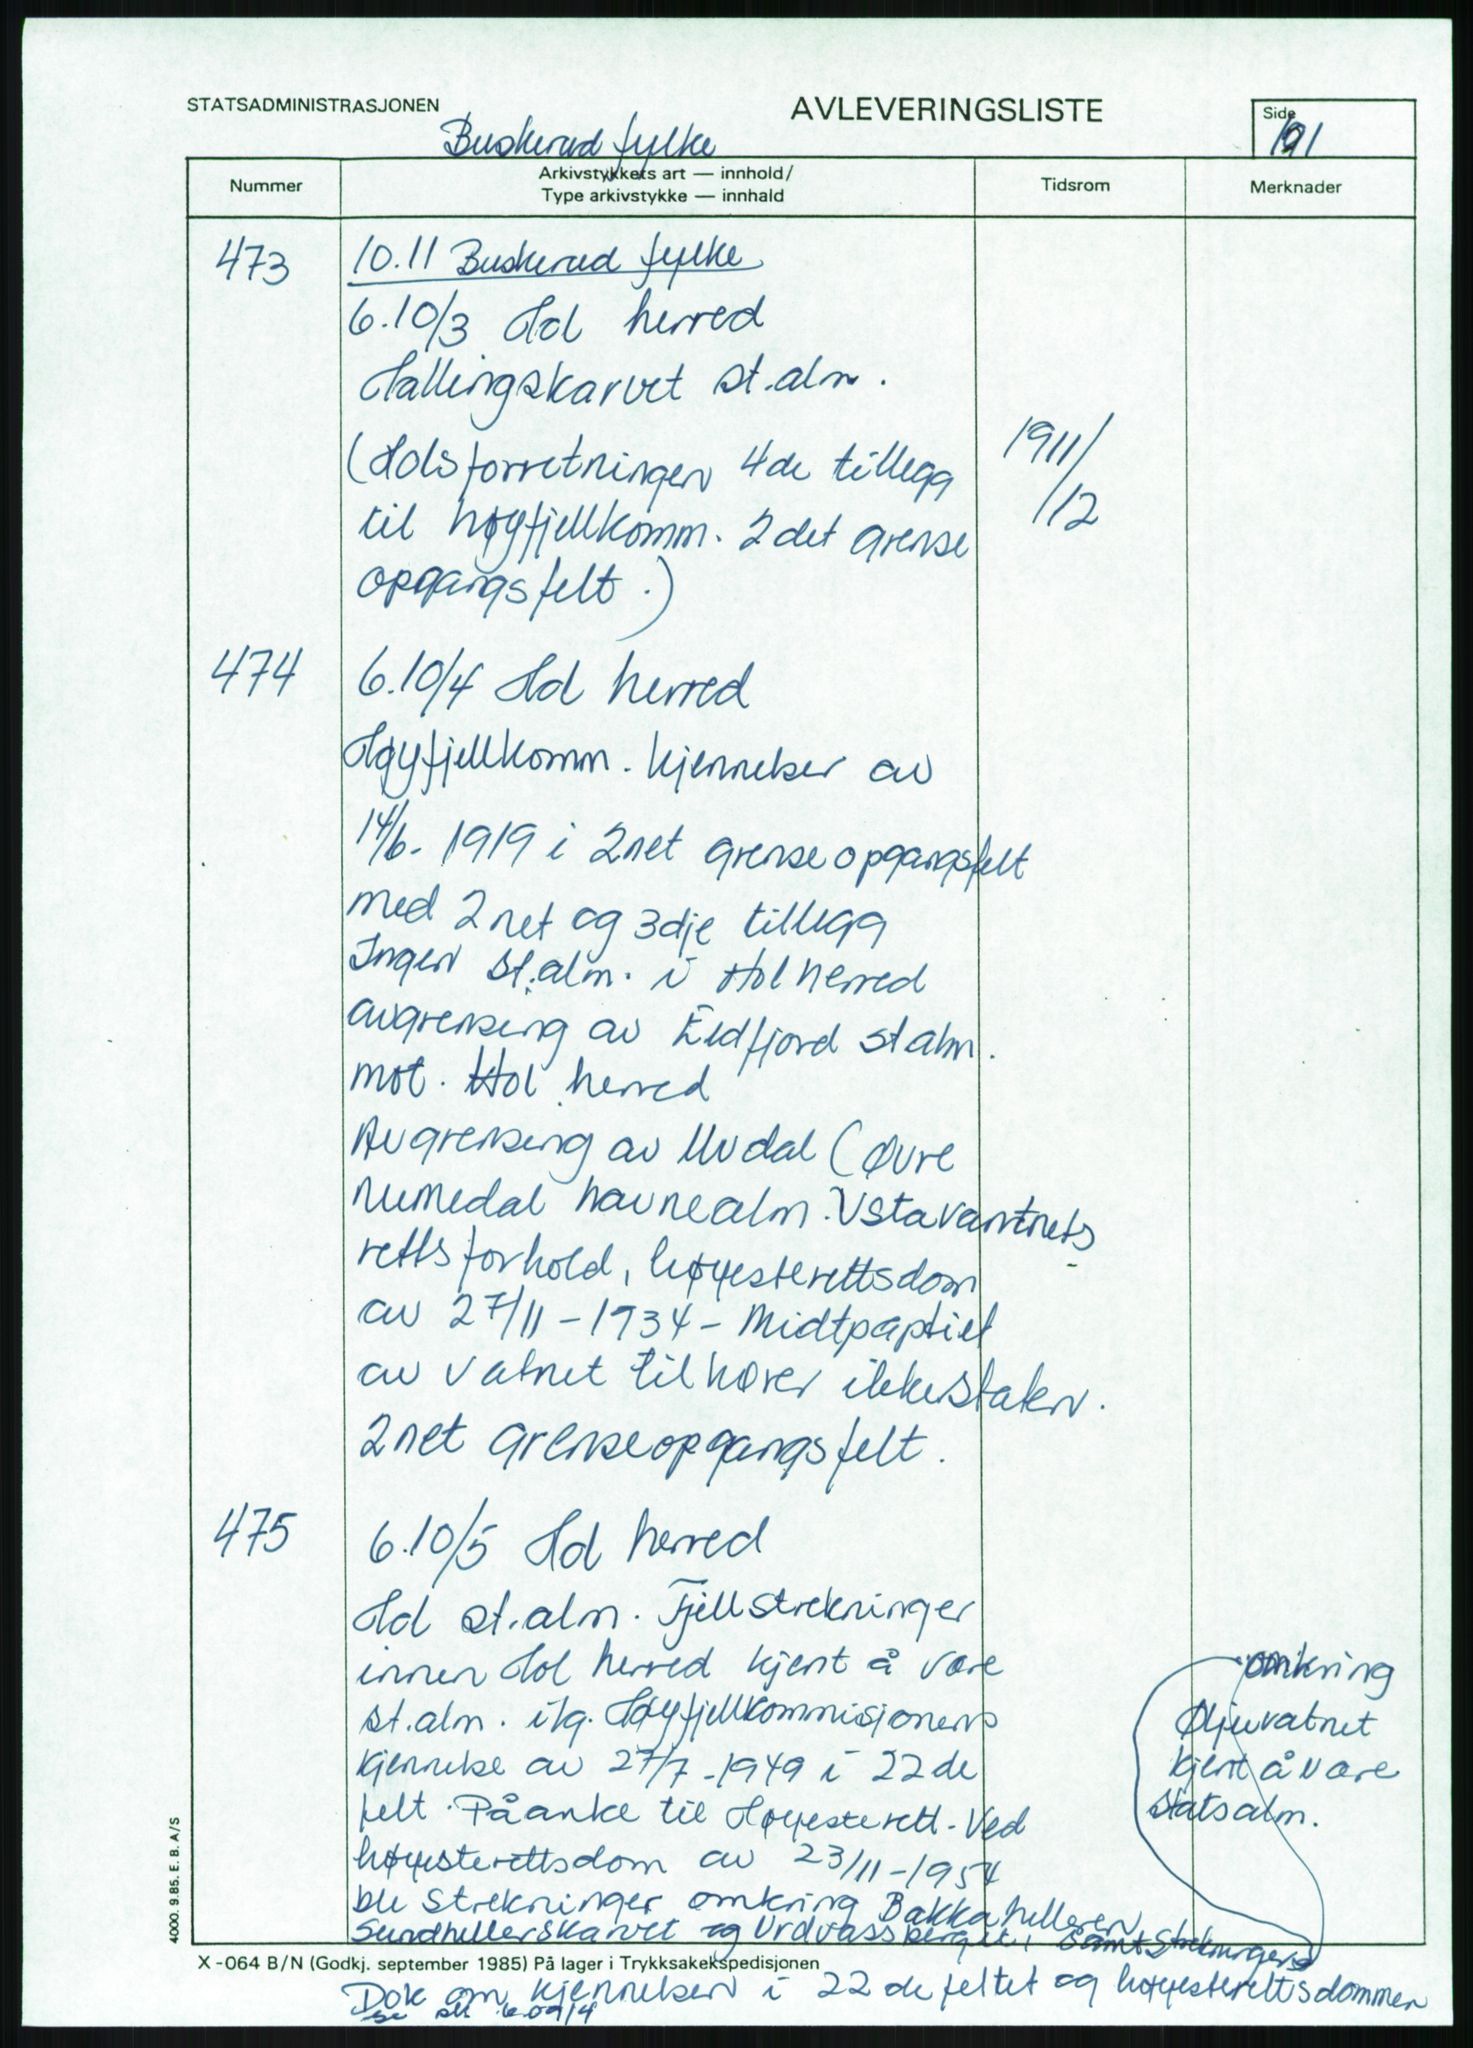 STATSADMINISTRASJONEN
AVLEVERINGSLISTE
Side
191
Buskerud fylke
Nummer
Arkivstykkets art — innhold/
Type arkivstykke — innhald
Tidsrom
Merknader
473
10.11 Buskerud fylke
6.10/3 Hol herred
Hallingskarvet st.alm.
(Holsforretningen 4de tillegg
til høyfjellkomm. 2det grense
opgangsfelt.)
1911/
/12
474
6.10/4 Hol herred
Høyfjellkomm. kjennelser av
14/6- 1919 i 2net grenseopgangsfelt
med 2net og 3dje tillegg
Ingen st.alm. i Hol herred
avgrensing av Eidfjord st alm.
mot. Hol herred
Avgrensing av Uvdal (Øvre
Numedal havnealm. Ustavantnets
rettsforhold, høyesterettsdom
av 27/11-1934 - Midtpartiet
av vatnet tilhører ikke staten.
2net grenseopgangsfelt.
475
6.10/5 Hol herred
Hol st.alm. Fjellstrekninger
innen Hol herred kjent å være
st.alm. ilg. Høyfjellkommisjonens
kjennelse av 27/7-1949 i 22de
felt. Påanke til Høyesterett. Ved
høyesterettsdom av 23/11-1954
ble strekninger omkring Bakkahelleren
Sundhellerskarvet og Urdvassberget, samt strekningene
omkring
Øljuvatnet
kjent å være
statsalm.
4000. 9.85. E. B. A/S
X-064 B/N (Godkj. september 1985) På lager i Trykksakekspedisjonen
Dok om kjennelsen i 22de feltet og høyesterettsdommen
se stk 6.09/4